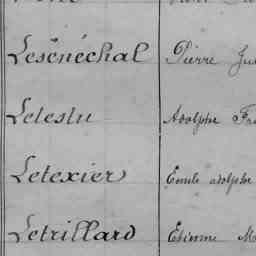 Lesénéchal Pierre
Letestu Adolphe
Letexier Emile adolphe
Letrillard Etienne